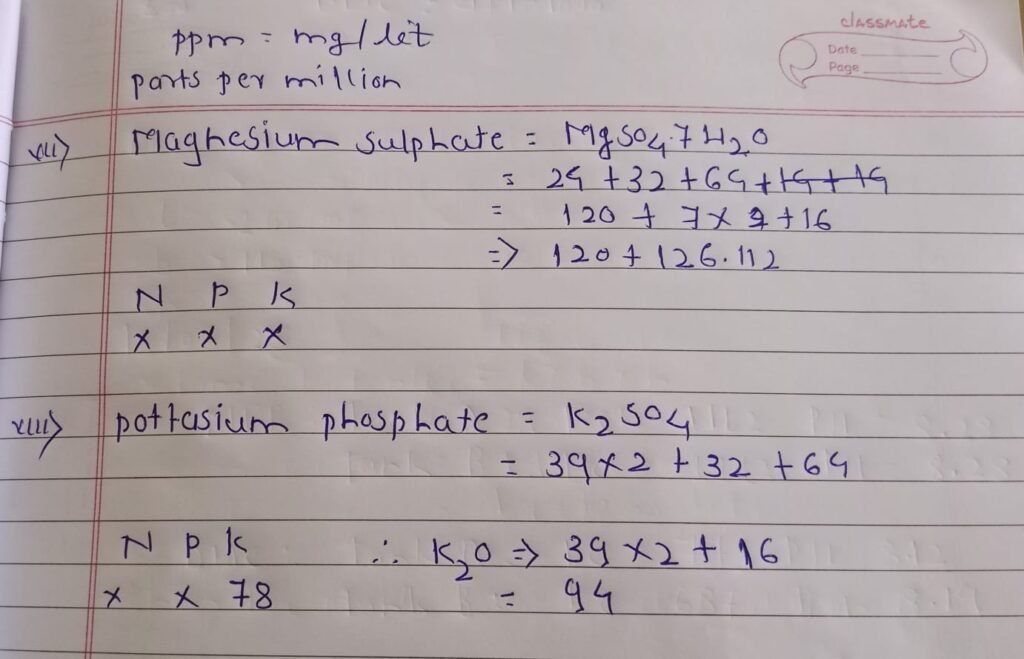 classmate
Date
Page
ppm = mg/let
parts per million
xii) Magnesium sulphate = MgSO4.7H2O
= 24 + 32 + 64 + 14 + 14
= 120 + 7 x 2 + 16
=> 120 + 126.112
N P K
x x x
xiii) pottasium phosphate = K2SO4
= 39 x 2 + 32 + 64
N P K ∴ K2O => 39 x 2 + 16
x x 78 = 94